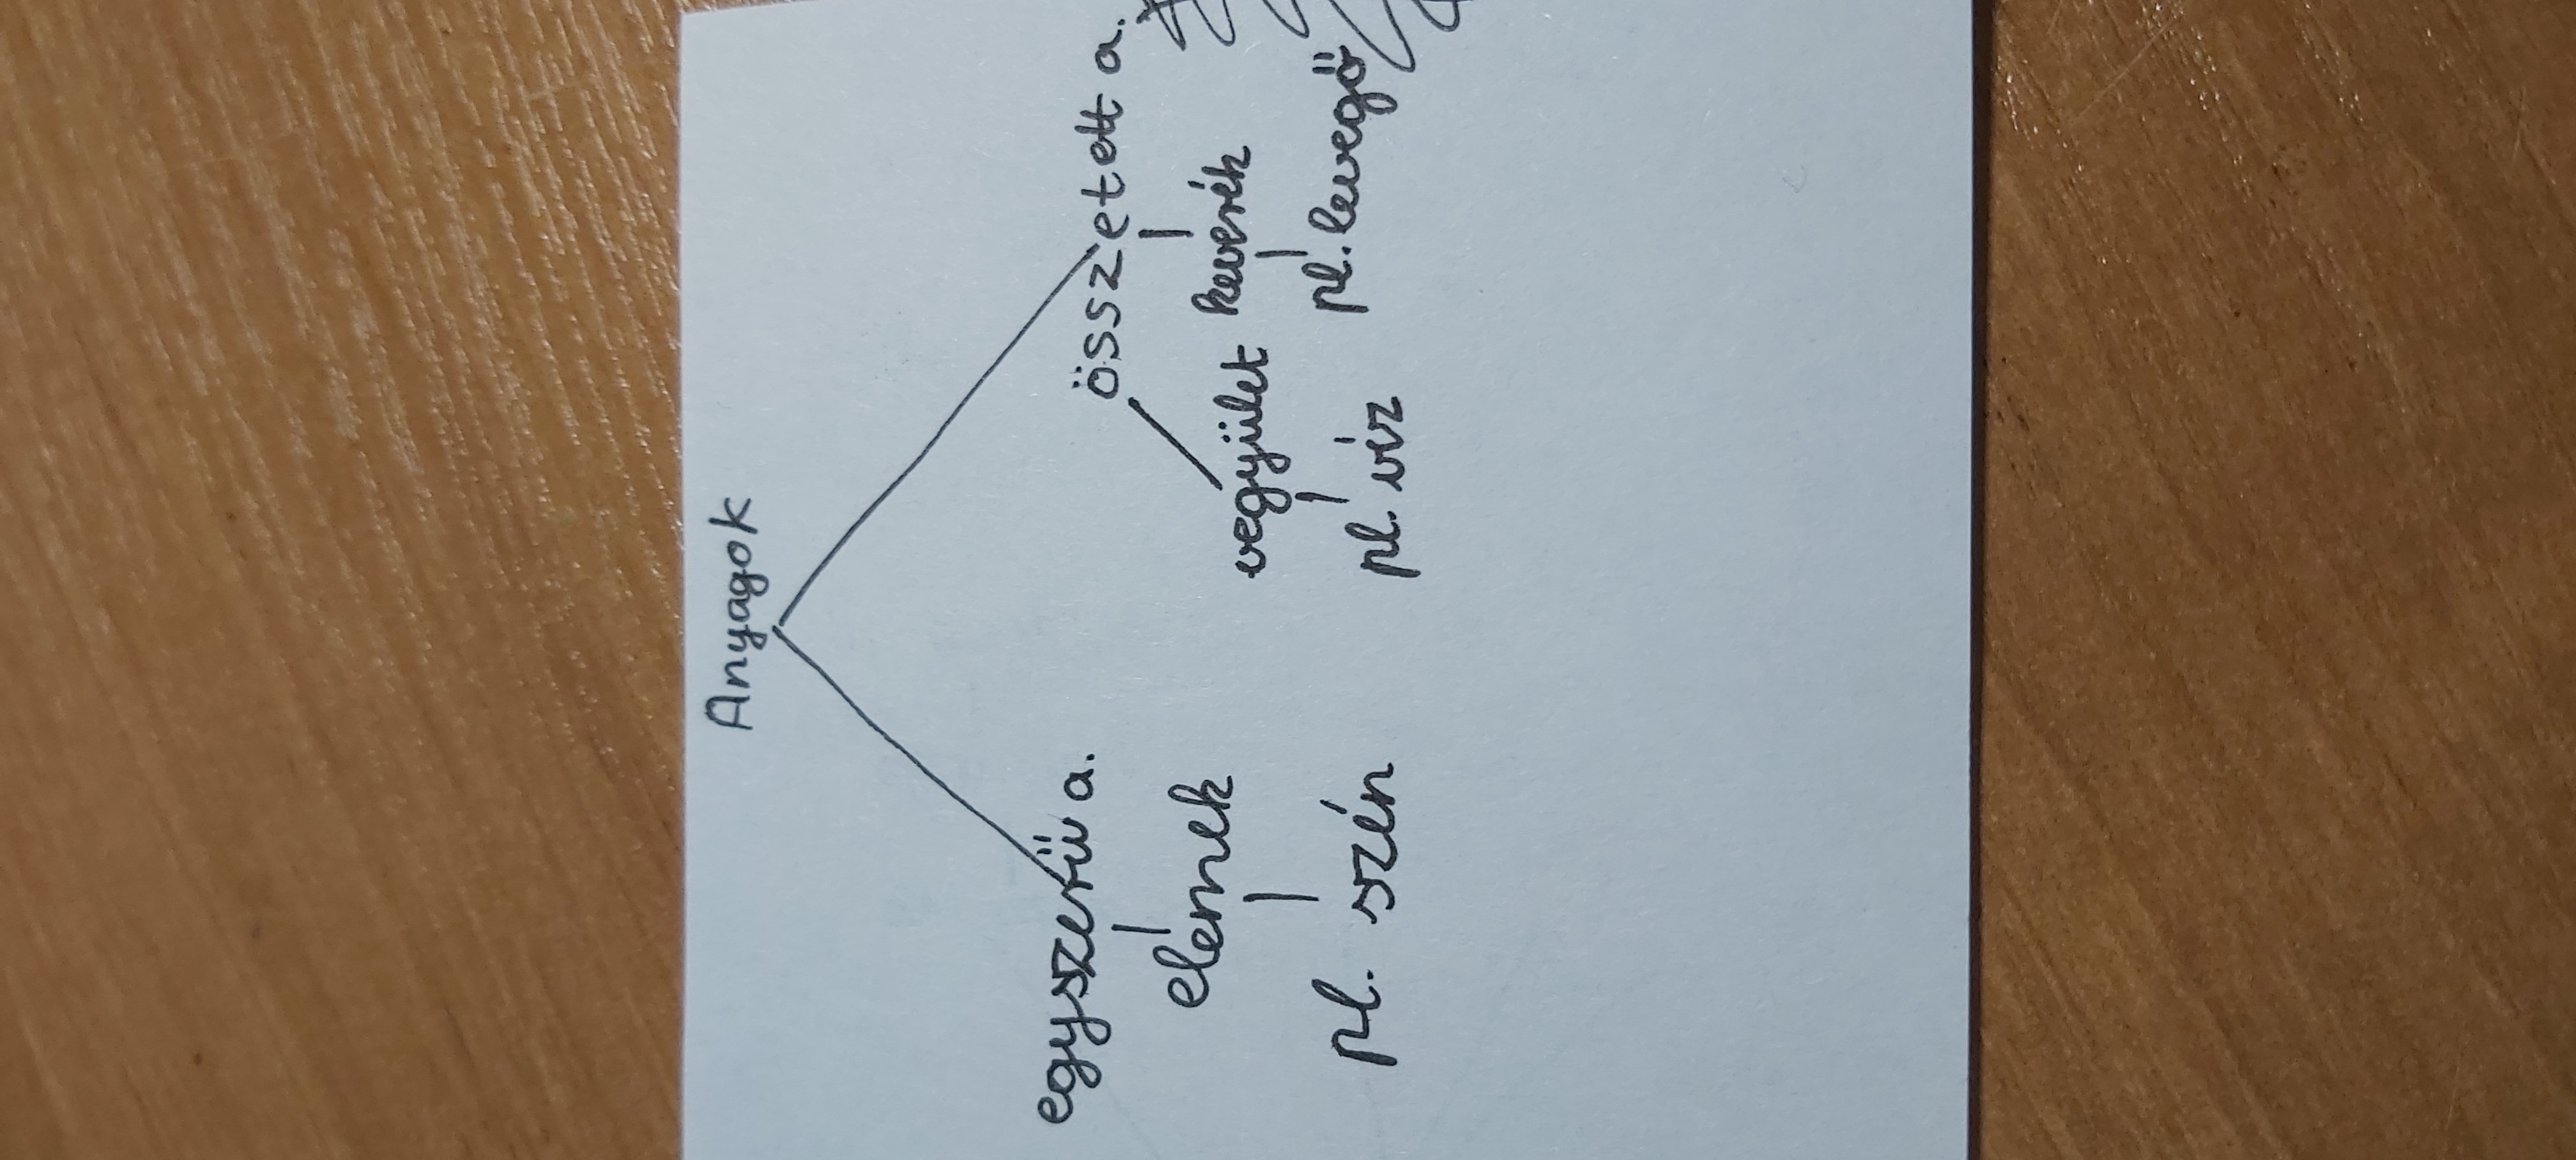 Anyagok
egyszerű a. összetett a.
elemek vegyület keverék
pl. szén pl. víz pl. levegő